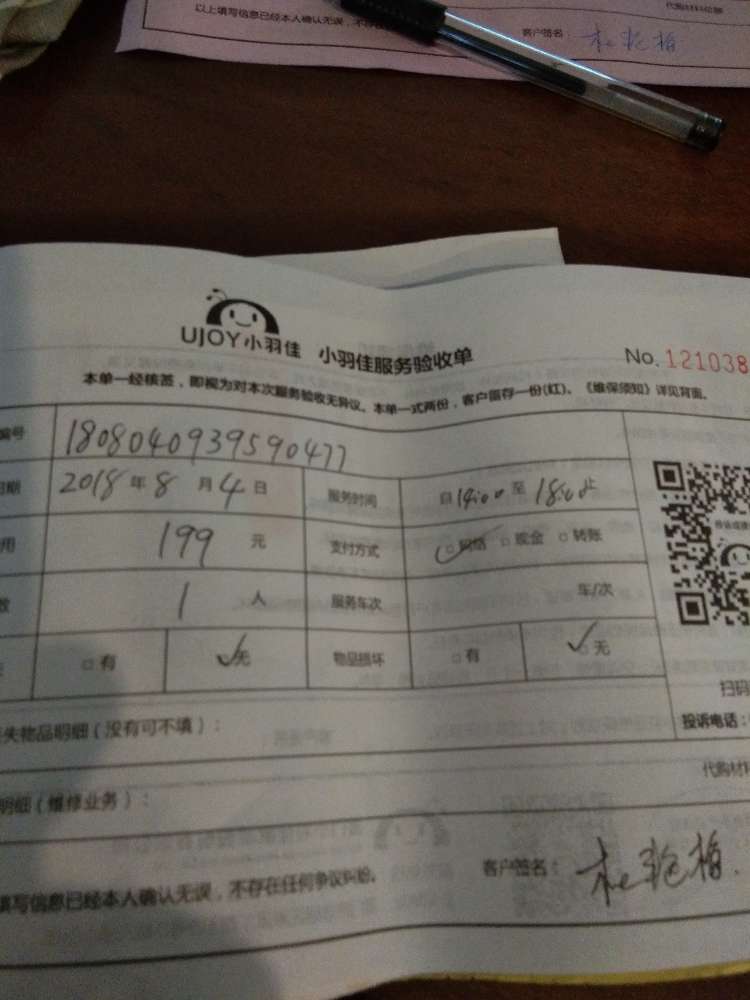 以上填写信息已经本人确认无误,不存在
客户签名:
UJOY小羽佳 小羽佳服务验收单
No. 121038
本单一经核签,即视为对本次服务验收无异议。本单一式两份,客户留存一份(红)。《维保须知》详见背面。
编号 1808040939590477
日期 2018年8月4日 服务时间 自14:00至18:00止
用 199 元 支付方式 网络 现金 转账
数 1 人 服务车次 车/次
有 无 物品损坏 有 无
扫码
失物品明细(没有可不填):
投诉电话:
代购材料
明细(维修业务):
填写信息已经本人确认无误,不存在任何争议纠纷。 客户签名: